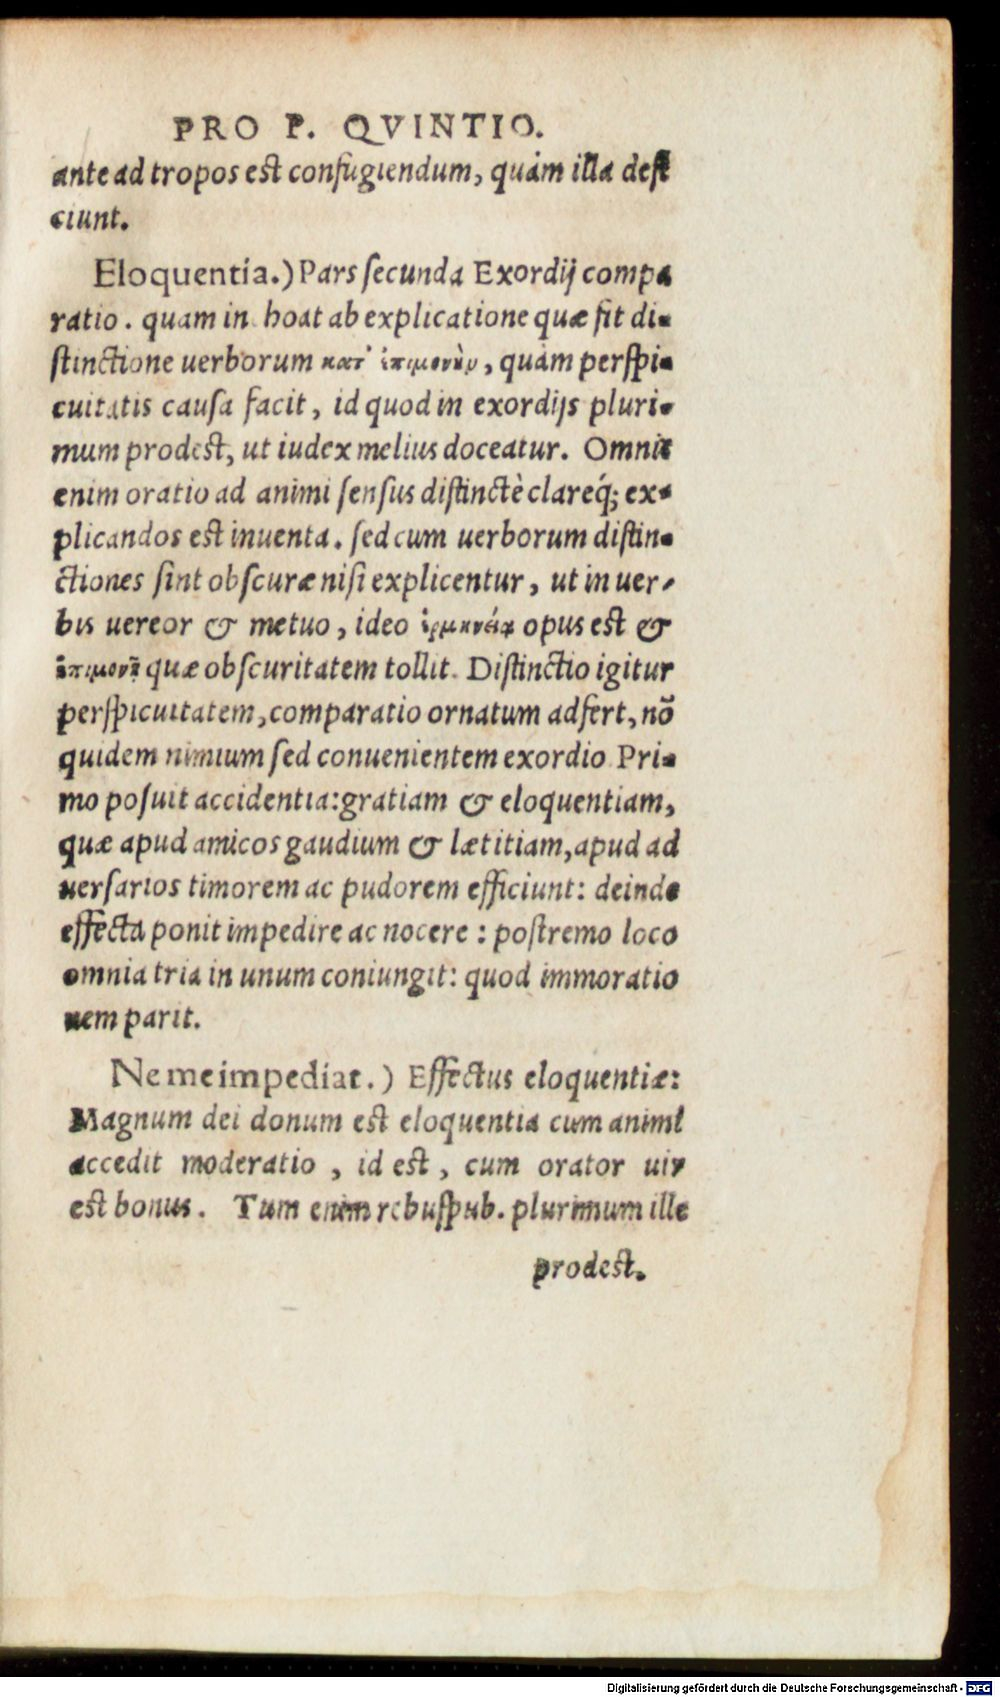 PRO P. QVINTIO.
ante ad tropos est confugiendum, quàm illa defi
ciunt.
Eloquentia.) Pars secunda Exordij compa
ratio. quam in hoat ab explicatione quæ fit di-
stinctione uerborum κατ' ἐπιμονὴν, quàm perspi-
cuitatis causa facit, id quod in exordijs pluri-
mum prodest, ut iudex melius doceatur. Omnis
enim oratio ad animi sensus distinctè clareq́; ex-
plicandos est inuenta. sed cum uerborum distin-
ctiones sint obscuræ nisi explicentur, ut in uer-
bis uereor & metuo, ideo opus est &
ἐπιμονῇ quæ obscuritatem tollit. Distinctio igitur
perspicuitatem, comparatio ornatum adfert, nõ
quidem nimium sed conuenientem exordio Pri-
mo posuit accidentia: gratiam & eloquentiam,
quæ apud amicos gaudium & lætitiam, apud ad
uersarios timorem ac pudorem efficiunt: deinde
effecta ponit impedire ac nocere: postremo loco
omnia tria in unum coniungit: quod immoratio
nem parit.
Ne me impediat.) Effectus eloquentiæ:
Magnum dei donum est eloquentia cum animi
accedit moderatio, id est, cum orator uir
est bonus. Tum enim rebuspub. plurimum ille
prodest.
Digitalisierung gefördert durch die Deutsche Forschungsgemeinschaft - DFG